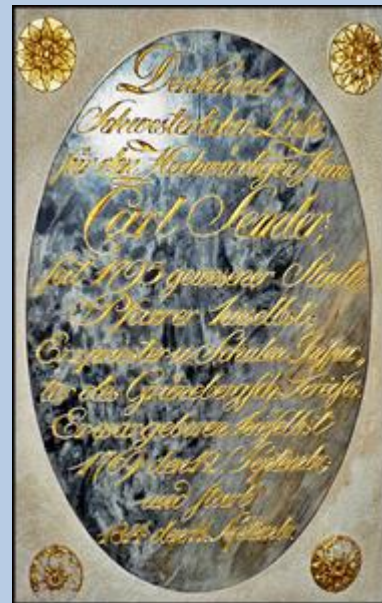 Denkmal
Schwesterlicher Liebe
für den Hochwürdigen Herrn
Carl Semler,
seit 1795 gewesener Stadt
Pfarrer hieselbst;
Erzpriester u. Schulen Inspec
tor des Grünebergsch. Kreises.
Er war geboren hieselbst
1769 den 12. Septembr.
und starb
den